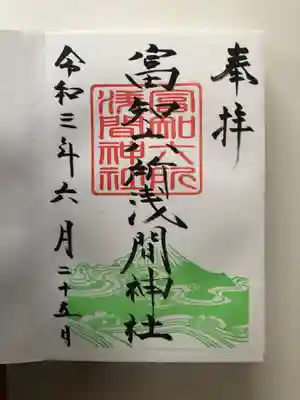 奉拝
富知六所浅間神社
令和三年六月二十五日
富知六所浅間神社